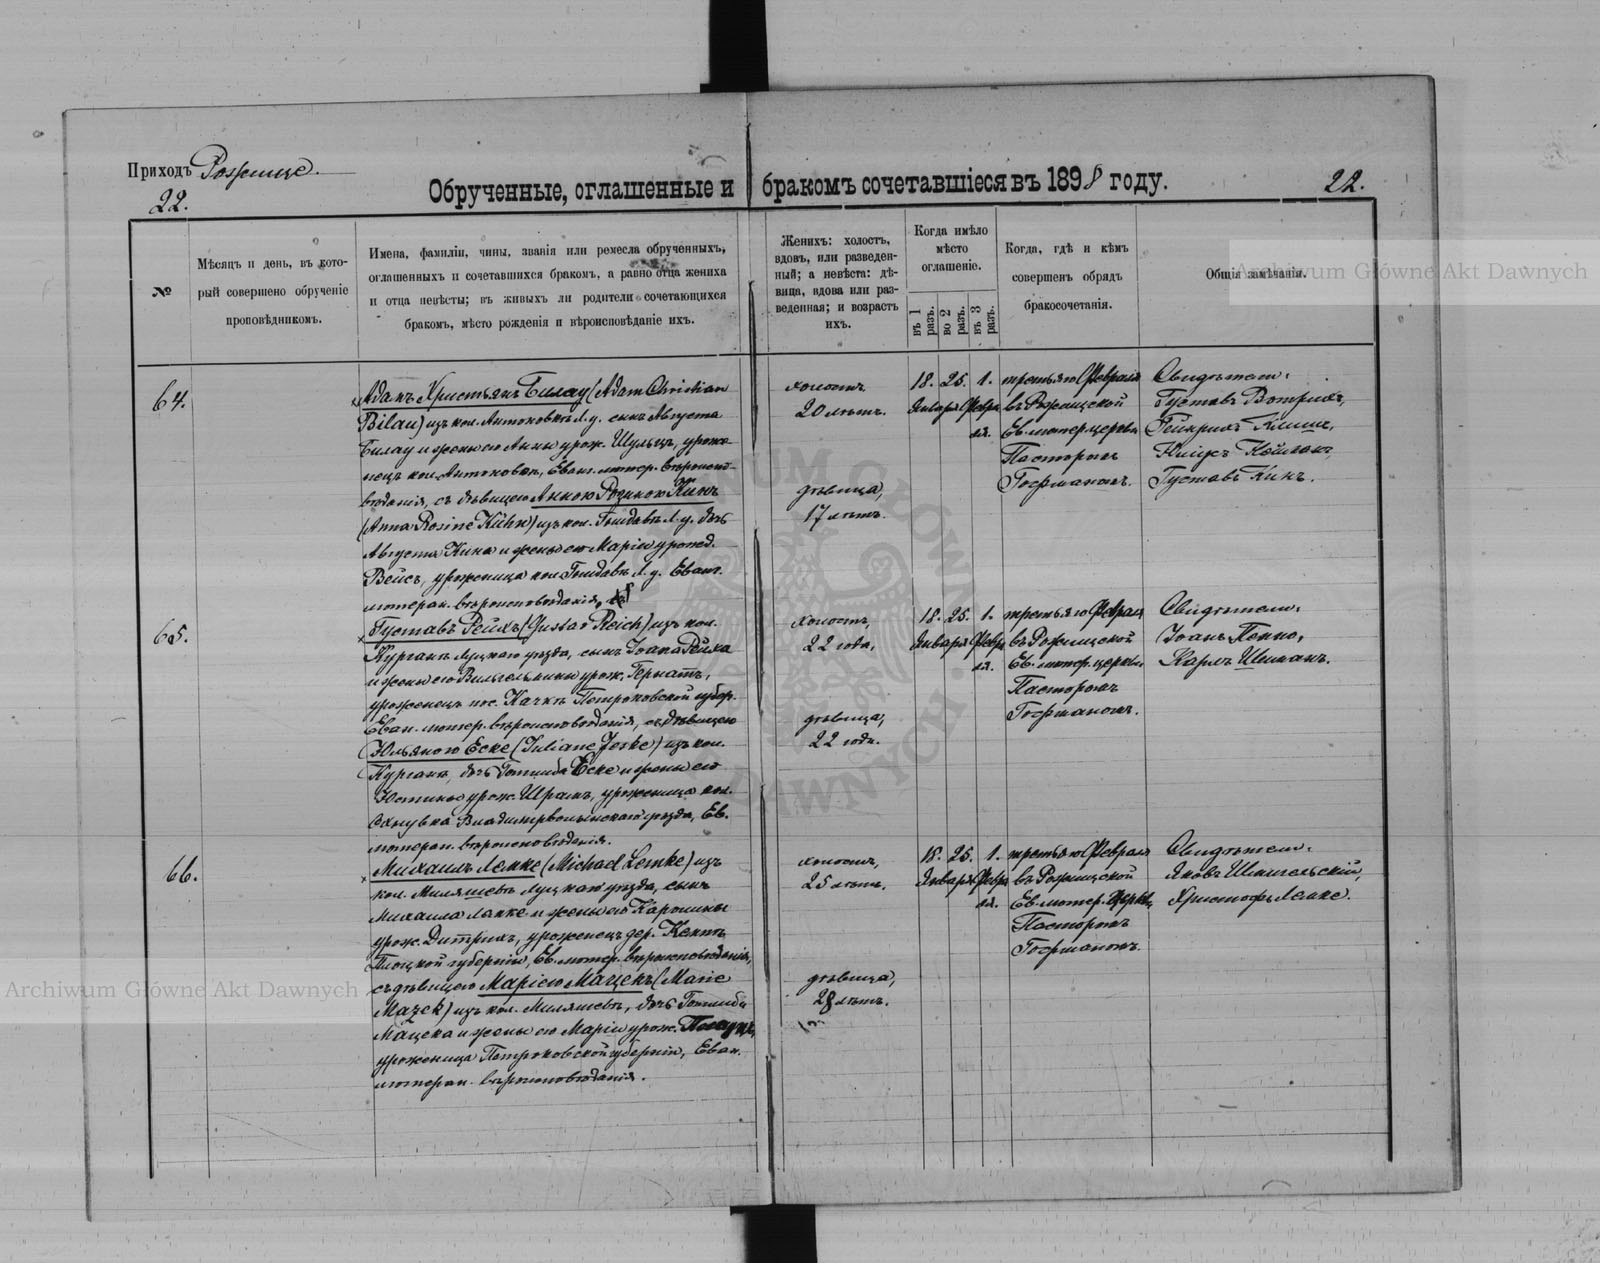 Приходъ Рожище.
22.
Обрученные, оглашенные и бракомъ сочетавшіеся въ 1898 году.
22.
№
Мѣсяцъ и день, въ кото-
рый совершено обрученіе
проповѣдникомъ.
Имена, фамиліи, чины, званія или ремесла обрученныхъ,
оглашенныхъ и сочетавшихся бракомъ, а равно отца жениха
и отца невѣсты; въ живыхъ ли родители сочетающихся
бракомъ, мѣсто рожденія и вѣроисповѣданіе ихъ.
Женихъ: холостъ,
вдовъ, или разведен-
ный; а невѣста: дѣ-
вица, вдова или раз-
веденная; и возрастъ
ихъ.
Когда имѣло
мѣсто
оглашеніе.
въ 1 разъ.
во 2 разъ.
въ 3 разъ.
Когда, гдѣ и кѣмъ
совершенъ обрядъ
бракосочетанія.
Общія замѣчанія.
Archiwum Główne Akt Dawnych
64.
Адамъ Христьянъ Билау (Adam Christian
Bilau) изъ кол. Антоновка Л. у. сынъ Августа
Билау и жены его Анны урож. Шульцъ, уроже-
нецъ кол. Антоновки, Еванг. лютер. вѣроиспо-
вѣданія, съ дѣвицею Анною Розиною Кинъ
(Anna Rosine Kühn) изъ кол. Л. у. дочь
Августа Кина и жены его Маріи урожд.
Вейсъ, уроженица кол. Л. у. Еванг.
лютеран. вѣроисповѣданія.
холостъ
20 лѣтъ.
дѣвица,
17 лѣтъ.
18. 25. 1.
Января Февра
ля.
третьяго Февраля
въ Рожищской
Ев. лютер. церкви
Пасторомъ
Гофманомъ.
Свидѣтели:
Густавъ
Гейнрихъ
Густавъ Кинъ.
65.
Густавъ Рейхъ (Gustav Reich) изъ кол.
Курганъ Луцкаго уѣзда, сынъ Іоана Рейха
и жены его Вильгельмины урож.
уроженецъ пос. Петроковской губер.
Еван. лютер. вѣроисповѣданія, съ дѣвицею
Юльяною Еске (Juliane Jeske) изъ кол.
Курганъ, дочь Готлиба Еске и жены его
Юстины урож. Шрамъ, уроженица кол.
Владимірволынскаго уѣзда, Ев.
лютеран. вѣроисповѣданія.
холостъ,
22 года,
дѣвица,
22 года.
18. 25. 1.
Января Февра
ля.
третьяго Февраля
въ Рожищской
Ев. лютер. церкви
Пасторомъ
Гофманомъ.
Свидѣтели:
Іоанъ
Карлъ
66.
Михаилъ Лемке (Michael Lemke) изъ
кол. Миляшевъ Луцкаго уѣзда, сынъ
Михаила Лемке и жены его Каролины
урож. Дитрихъ, уроженецъ дер.
Плоцкой губерніи, Ев. лютер. вѣроисповѣданія,
съ дѣвицею Маріею Мацекъ (Marie
Mazek) изъ кол. Миляшевъ, дочь Готлиба
Мацека и жены его Маріи урож.
уроженица Петроковской губерніи, Еван.
лютеран. вѣроисповѣданія.
холостъ,
25 лѣтъ.
дѣвица,
28 лѣтъ.
18. 25. 1.
Января Февра
ля.
третьяго Февраля
въ Рожищской
Ев. лютер. церкви
Пасторомъ
Гофманомъ.
Свидѣтели:
Яковъ
Христофъ Лемке.
Archiwum Główne Akt Dawnych